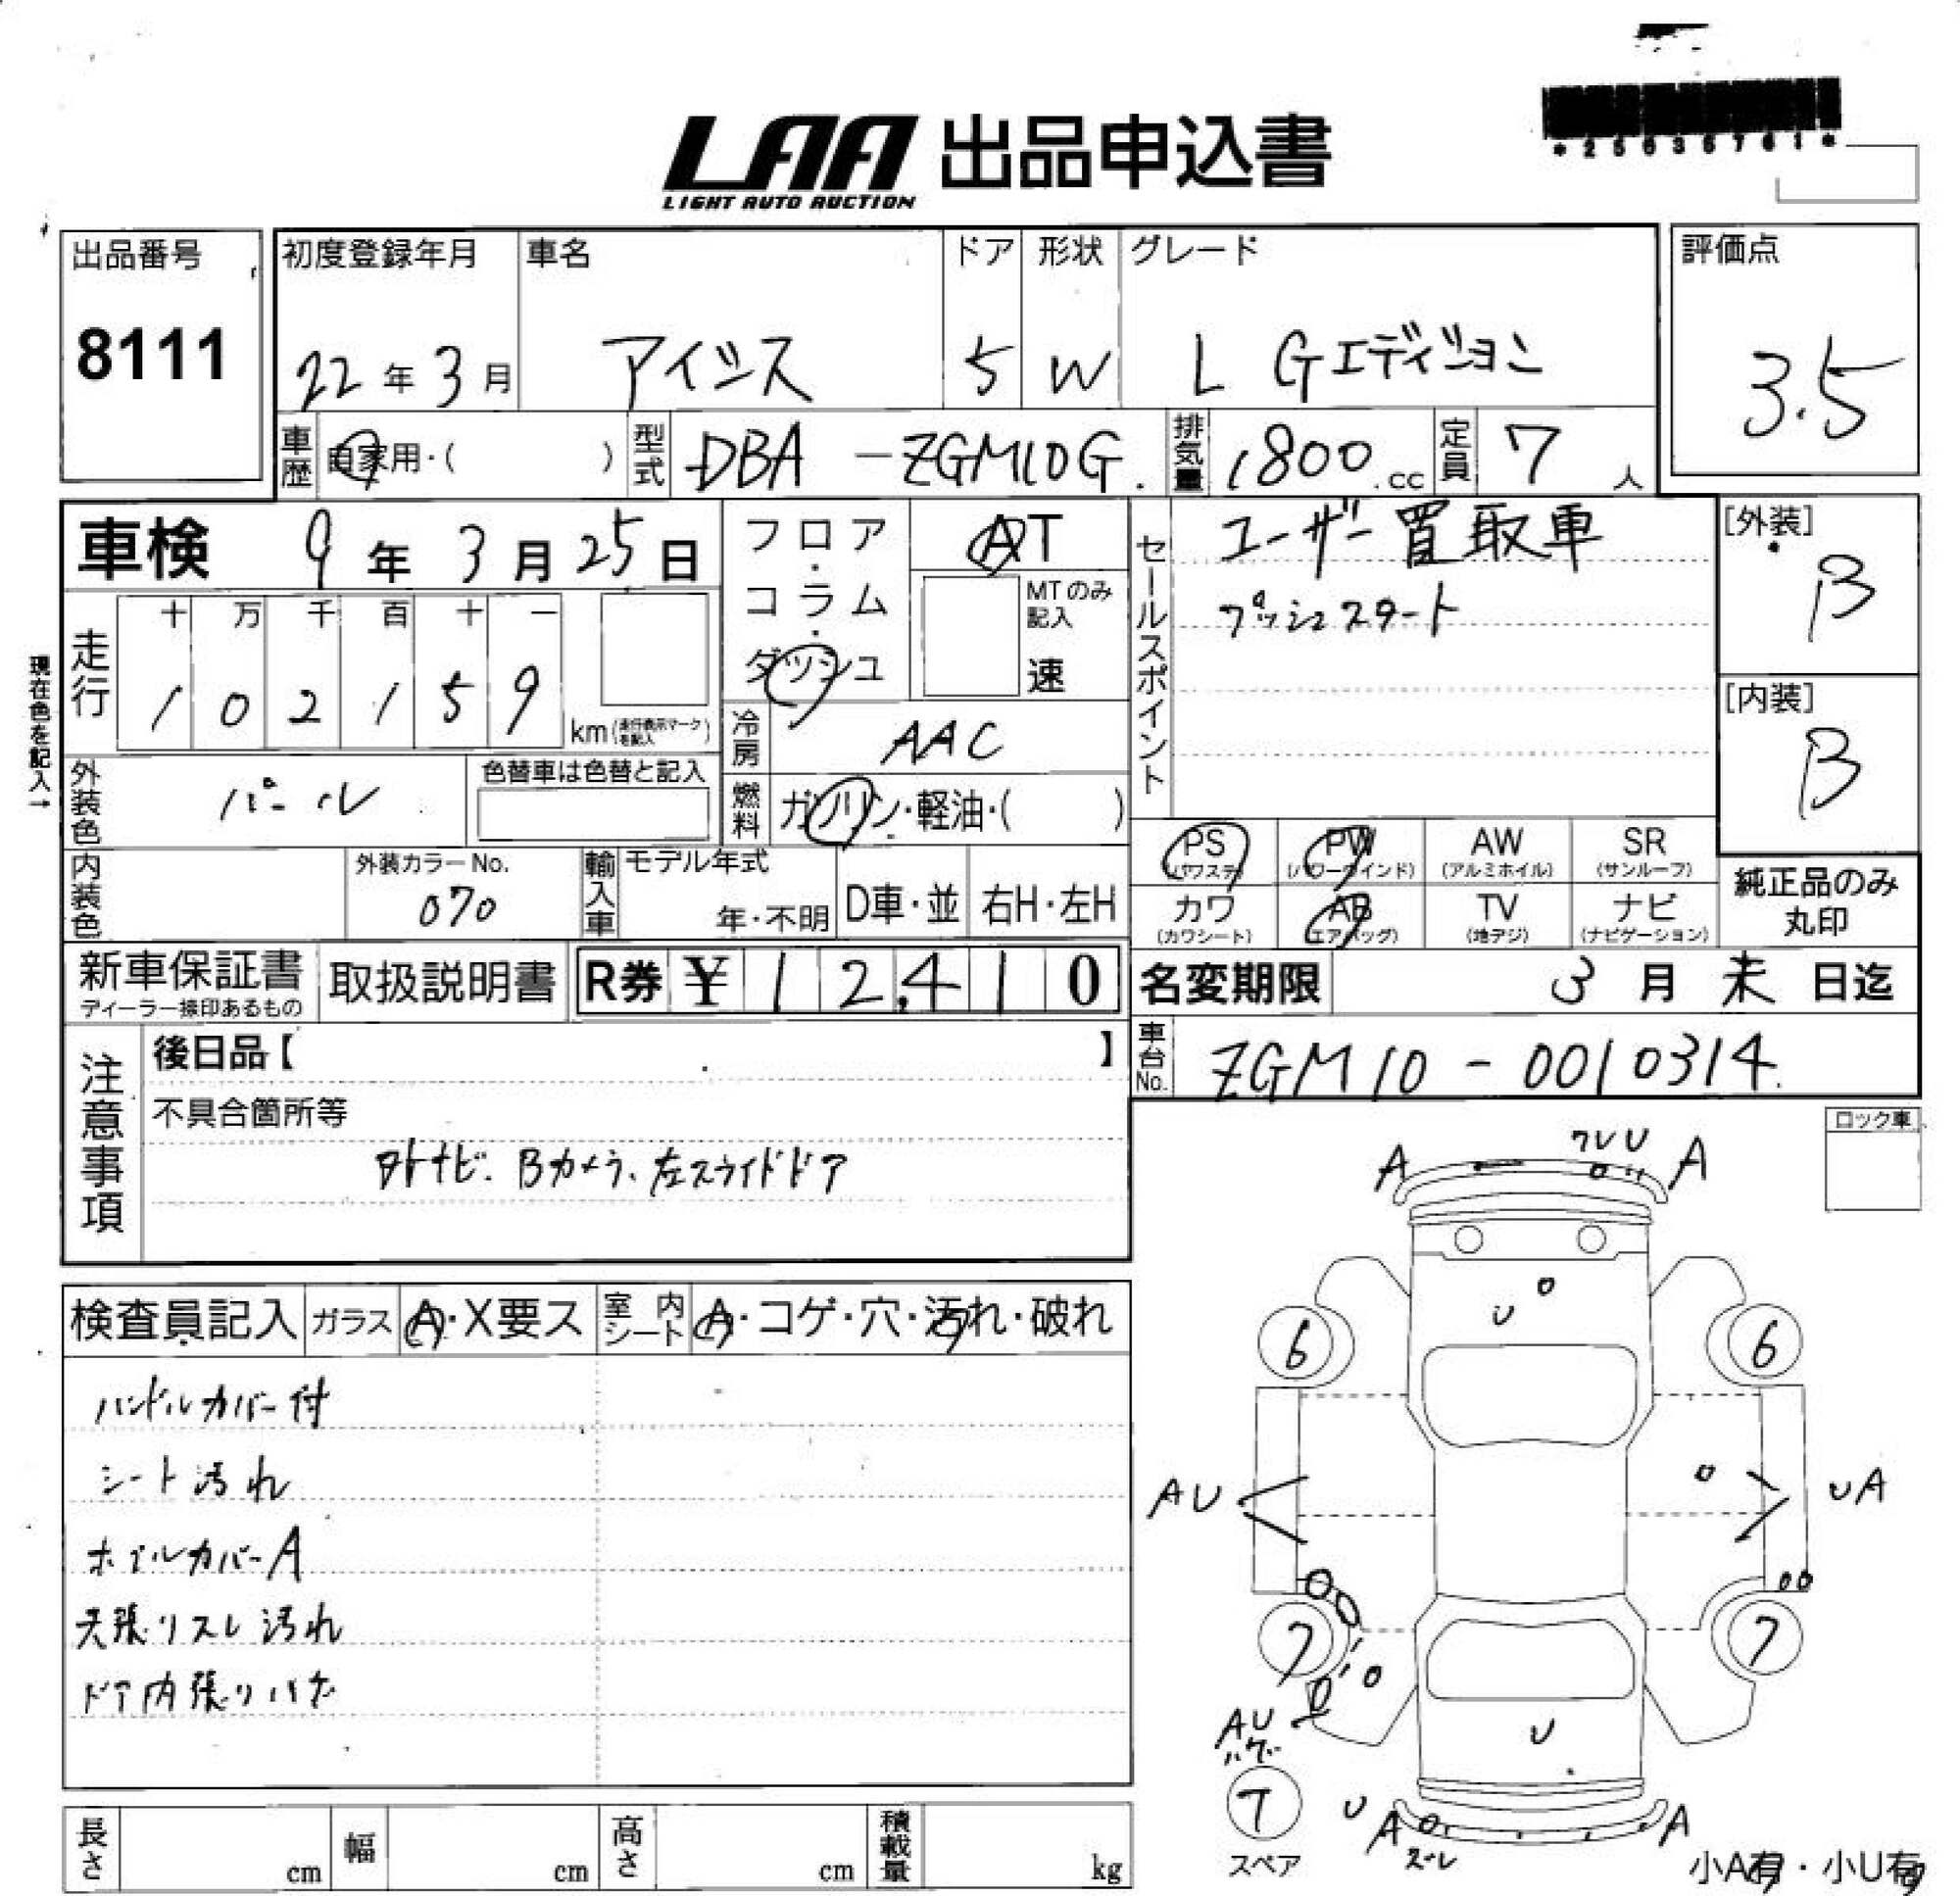 *25035761*
LAA 出品申込書
LIGHT AUTO AUCTION
出品番号
8111
初度登録年月
22年3月
車名
アイシス
ドア
5
形状
W
グレード
L Gエディション
評価点
3.5
車歴
自家用・( )
型式
DBA-ZGM10G
排気量
1800.cc
定員
7人
車検 9年3月25日
フロア・コラム・ダッシュ
AT
MTのみ記入
速
セールスポイント
ユーザー買取車
プッシュスタート
[外装]
B
[内装]
B
現在色を記入→
走行
十 万 千 百 十 一
1 0 2 1 5 9
km(走行表示マークを記入)
冷房
AAC
外装色
パール
色替車は色替と記入
燃料
ガソリン・軽油・( )
内装色
外装カラーNo.
070
輸入車
モデル年式
年・不明
D車・並
右H・左H
PS
(パワステ)
PW
(パワーウインド)
AW
(アルミホイル)
SR
(サンルーフ)
カワ
(カワシート)
AB
(エアバッグ)
TV
(地デジ)
ナビ
(ナビゲーション)
純正品のみ
丸印
新車保証書
ディーラー捺印あるもの
取扱説明書
R券 ¥12,410
名変期限
3月末日迄
車台No.
ZGM10-0010314
注意事項
後日品【 】
不具合箇所等
社外ナビ、Bカメラ、左スライドドア
ロック車
検査員記入
ガラス
A・X要ス
室内シート
A・コゲ・穴・汚れ・破れ
ハンドルカバー付
シート汚れ
ホイルカバーA
天張りスレ汚れ
ドア内張りハガレ
A
ワレU
A
U
6
6
AU
UA
7
7
AU
U
T
スペア
U
A
スレ
A
小A有・小U有
長さ
cm
幅
cm
高さ
cm
積載量
kg